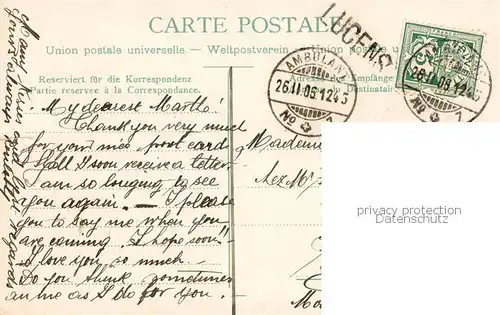 CARTE POSTALE
LUCENS
Union postale universelle – Weltpostverein – Union postale
Reserviert für die Korrespondenz
Partie reservée à la Correspondance.
Adresse des Empfäng
Destinatai
AMBULANT
26.II.06.12
No
AMBULANT
26.II.06.12
No
My dearest Martho!
Thank you very much
for your nice post card
Shall I soon receive a letter
I am so longing to see
you again. – I please
you to say me when you
are coming. I hope soon!
I love you so much
Do you think sometimes
an me as I do for you.
Mademoi
Many kisses and
regards
privacy protection
Datenschutz